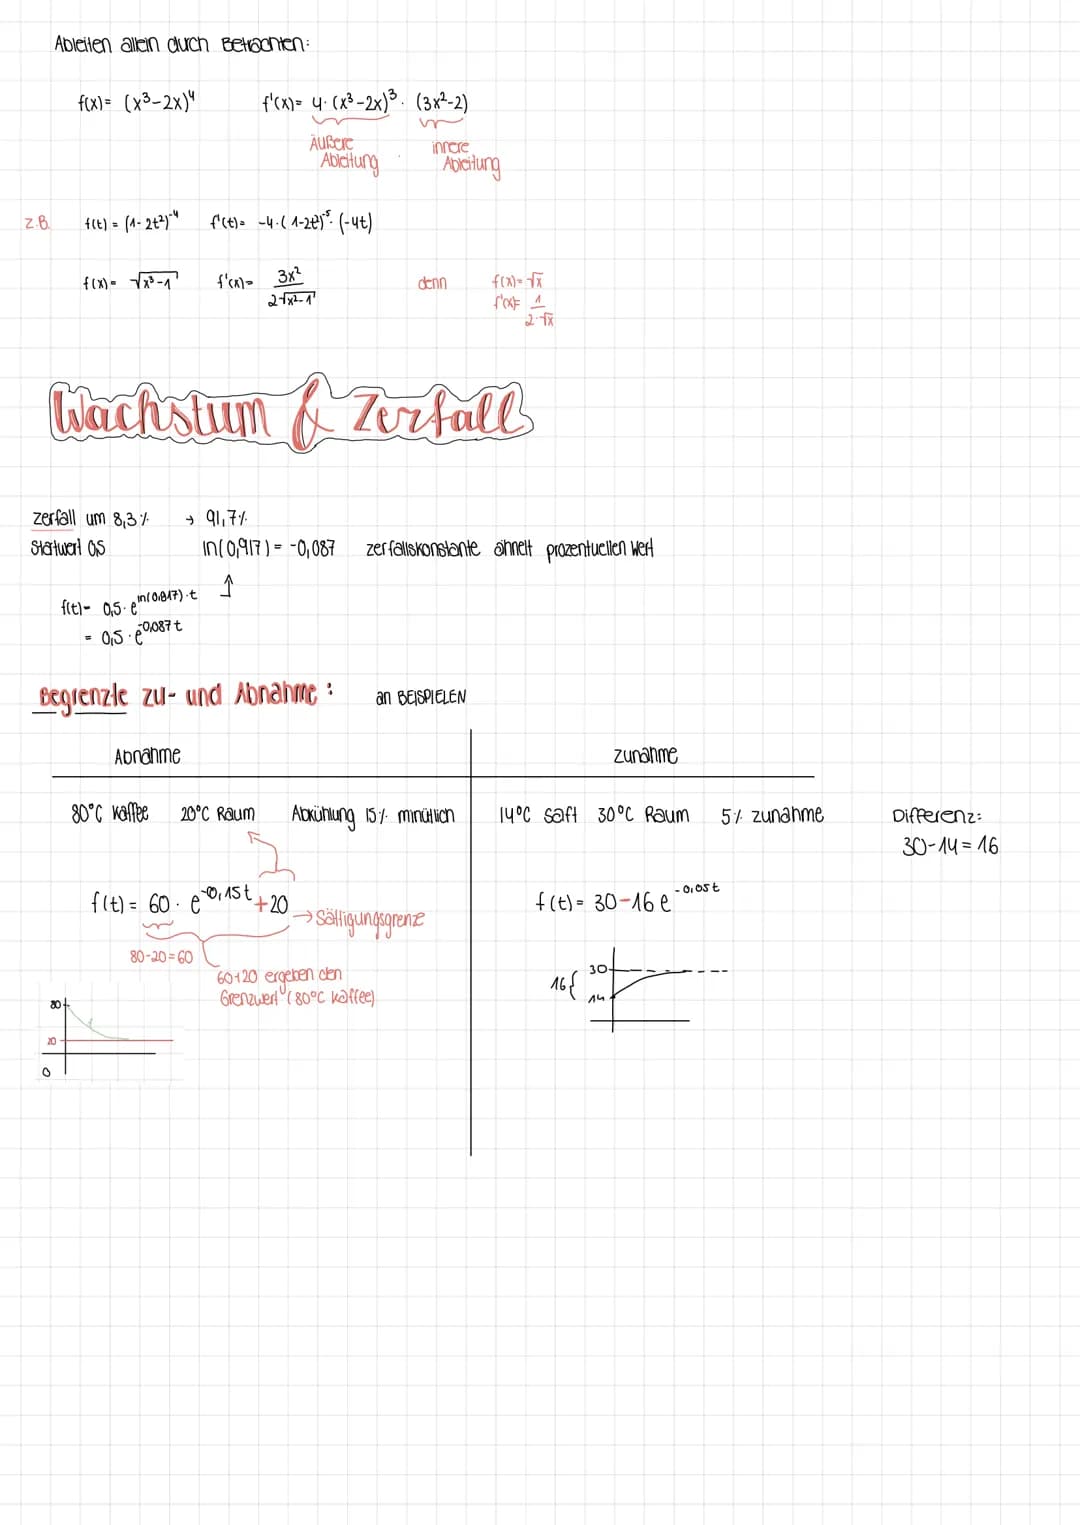 Ableiten allein durch Betrachten:
f(x)= (x³-2x)⁴ f'(x)= 4·(x³-2x)³·(3x²-2)
Äußere Ableitung · innere Ableitung
z.B. f(t) = (1-2t²)⁻⁴ f'(t)= -4·(1-2t²)⁻⁵·(-4t)
f(x)= √x³-1 f'(x)= 3x² / 2√x²-1 denn f(x)=√x
f'(x)= 1 / 2·√x
Wachstum & Zerfall
Zerfall um 8,3% → 91,7%
Startwert 0,5 ln(0,917) = -0,087 Zerfallskonstante ähnelt prozentuellen Wert
f(t)= 0,5·e^ln(0,817)·t ↑
= 0,5·e^-0,087t
Begrenzte Zu- und Abnahme: an BEISPIELEN
Abnahme Zunahme
80°C Kaffee 20°C Raum Abkühlung 15% minütlich 14°C Saft 30°C Raum 5% Zunahme Differenz:
30-14=16
f(t) = 60·e^-0,15t +20 → Sättigungsgrenze f(t)= 30-16e^-0,05t
80-20=60
60+20 ergeben den
Grenzwert (80°C Kaffee)
16{ 30
14
80
20
0